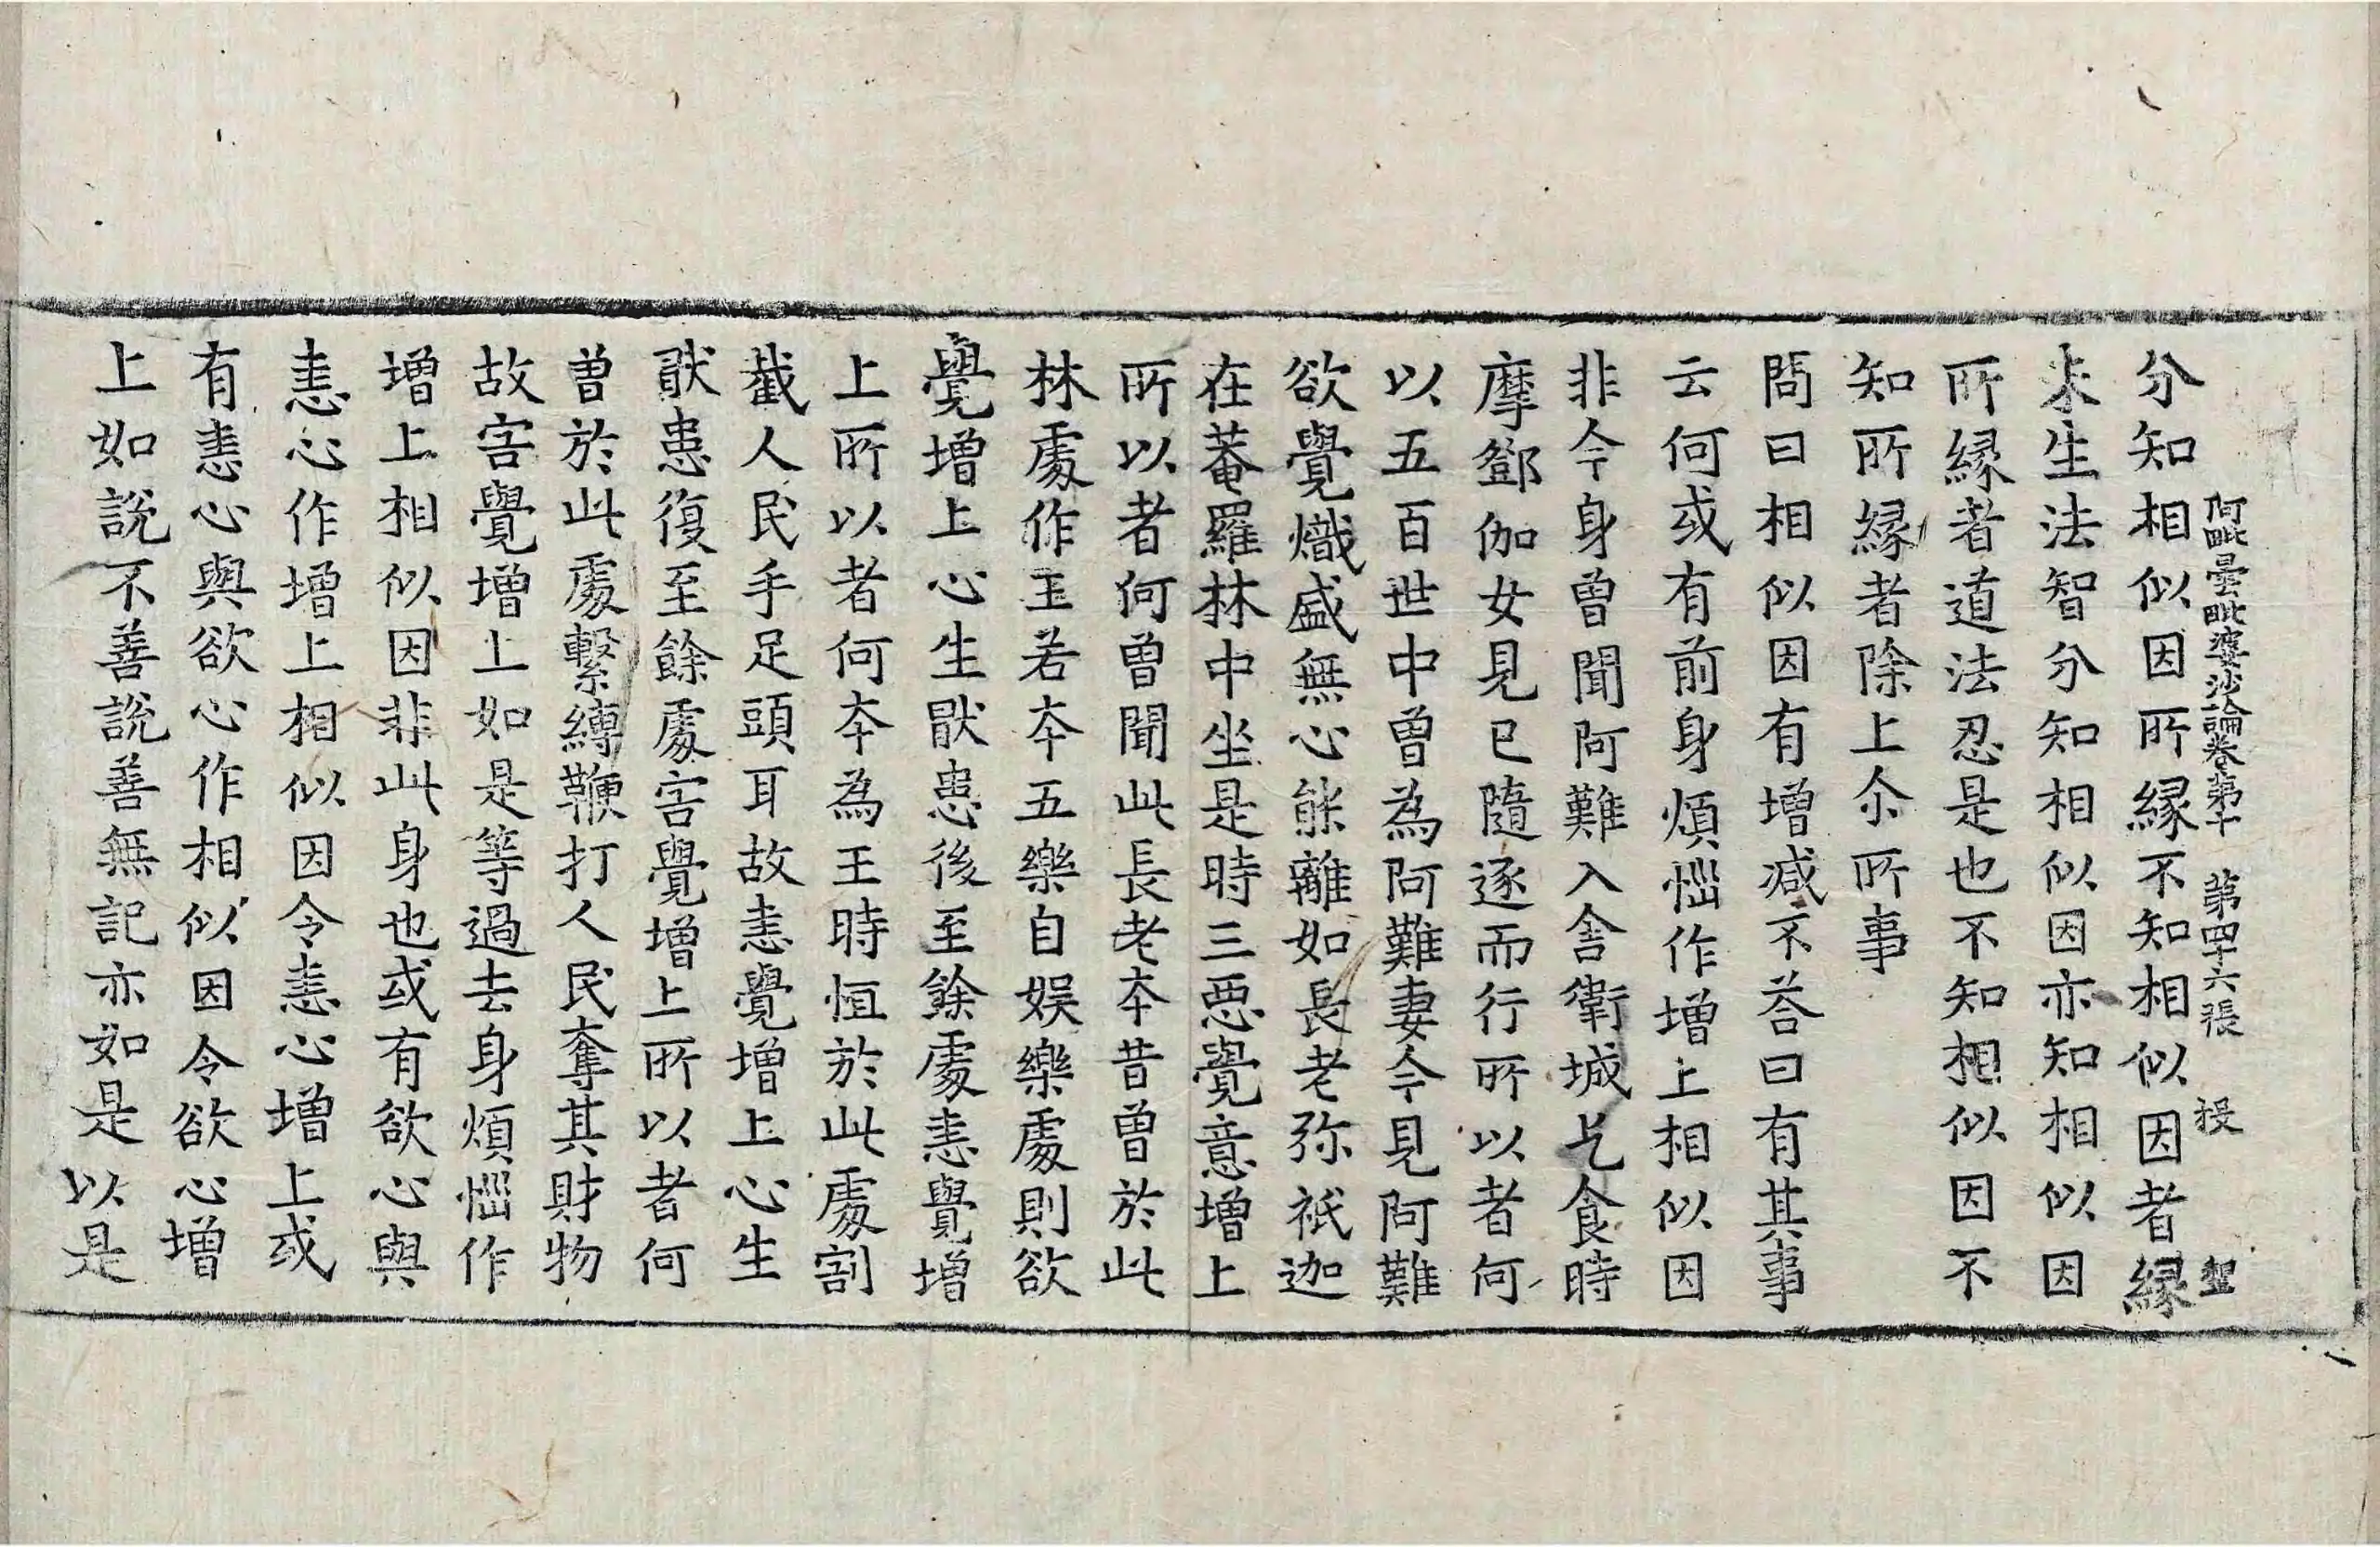 阿毗曇毗婆沙論卷第十　第四十六張　授　聖
分知相似因所縁不知相似因者縁
未生法智分知相似因亦知相似因
所縁者道法忍是也不知相似因不
知所縁者除上尒所事
問曰相似因有增減不荅曰有其事
云何或有前身煩惱作增上相似因
非今身曾聞阿難入舍衛城乞食時
摩鄧伽女見已隨逐而行所以者何
以五百世中曾為阿難妻今見阿難
欲覺熾盛無心能離如長老弥祇迦
在菴羅林中坐是時三惡覺意增上
所以者何曾聞此長老夲昔曾於此
林處作王若夲五樂自娱樂處則欲
覺增上心生猒患後至餘處恚覺增
上所以者何夲為王時恒於此處割
截人民手足頭耳故恚覺增上心生
猒患復至餘處害覺增上所以者何
曽於此處繫縛鞭打人民奪其財物
故害覺增上如是等過去身煩惱作
增上相似因非此身也或有欲心與
恚心作增上相似因令恚心增上或
有恚心與欲心作相似因令欲心增
上如說不善說善無記亦如是以是